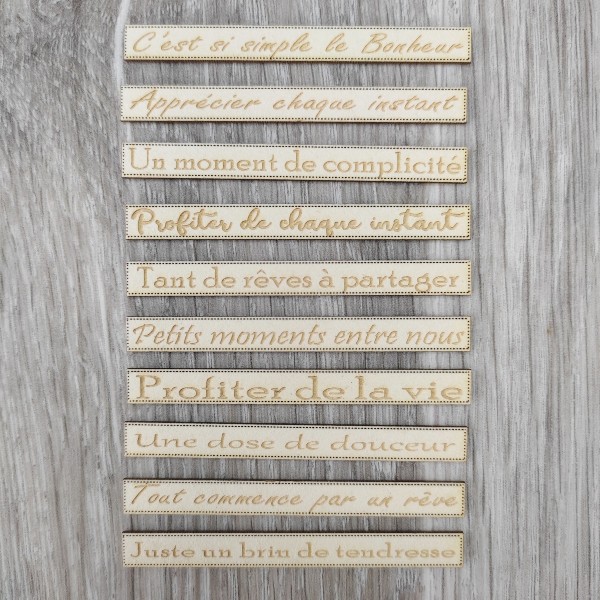 C'est si simple le Bonheur
Apprécier chaque instant
Un moment de complicité
Profiter de chaque instant
Tant de rêves à partager
Petits moments entre nous
Profiter de la vie
Une dose de douceur
Tout commence par un rêve
Juste un brin de tendresse